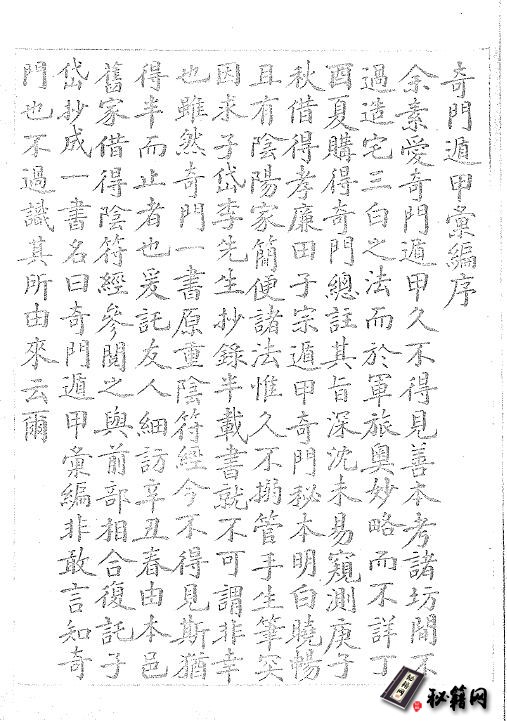 奇門遁甲彙編序
余素愛奇門遁甲久不得見善本考諸坊間不
過造宅三白之法而於軍旅奧妙略而不詳丁
酉夏購得奇門總註其旨深沈未易窺測庚子
秋借得孝廉田子宗遁甲奇門秘本明白曉暢
且有陰陽家簡便諸法惟久不搦管手生筆突
因求子岱李先生抄錄半載書就不可謂非幸
也雖然奇門一書原重陰符經今不得見斯猶
得半而止者也爰託友人細訪辛丑春由本邑
舊家借得陰符經參閱之與前部相合復託子
岱抄成一書名曰奇門遁甲彙編非敢言知奇
門也不過識其所由來云爾
秘籍网